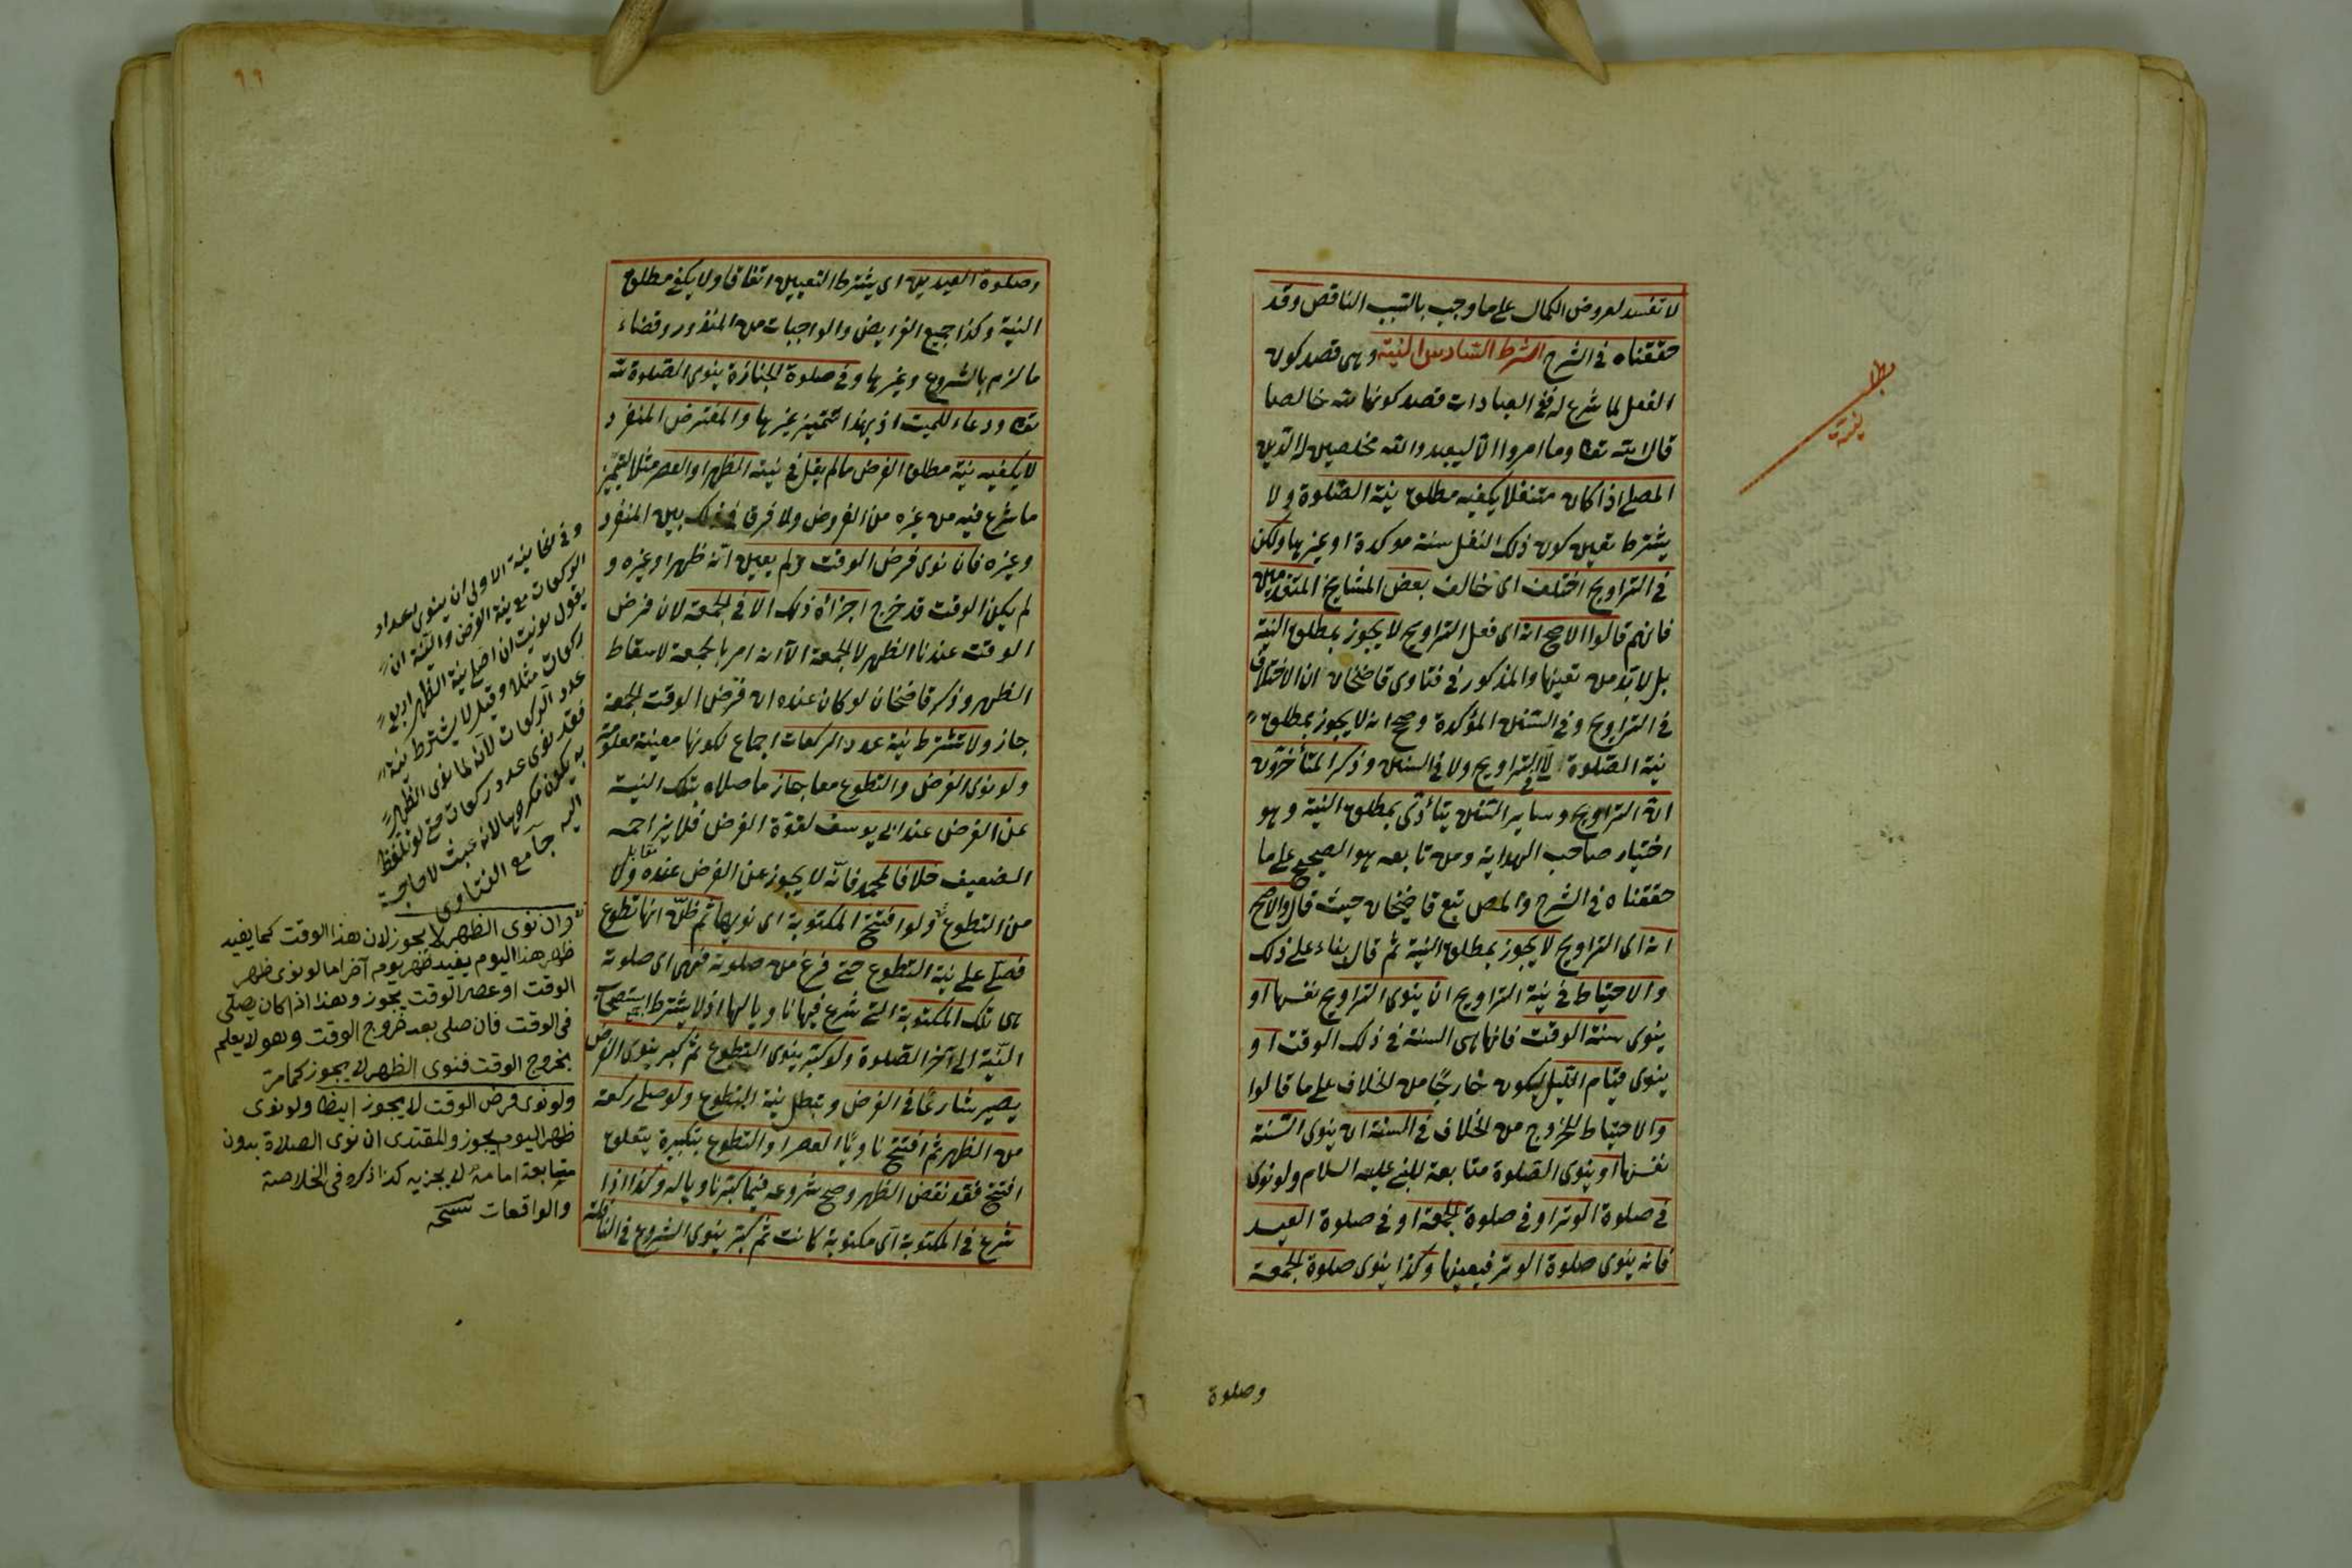 لا تفسد لعروض الكمال على ما وجب بالسبب الناقص وقد
حققناه فى الشرح الشرط السادس النية وهى قصد كون
الفعل لما شرع له ففى العبادات قصد كونها لله خالصا
قال الله تعالى وما امروا الا ليعبدوا الله مخلصين له الدين
المصلى اذا كان متنفلا يكفيه مطلق نية الصلوة ولا
يشترط تعيين كون ذلك النفل سنة موكدة او غيرها ولكن
فى التراويح اختلف اى خالف بعض المشايخ المتقدمين
فانهم قالوا الاصح انه اى فعل التراويح لا يجوز بمطلق النية
بل لا بد من تعينها والمذكور فى فتاوى قاضخان ان الاختلاف
فى التراويح وفى السنن المؤكدة وصح انه لا يجوز بمطلق
نية الصلوة لا فى التراويح ولا فى السنن وذكر المتأخرون
ان التراويح وساير السنن يتأدى بمطلق النية وهو
اختيار صاحب الهداية ومن تابعه هو الصحيح على ما
حققناه فى الشرح والمص تبع قاضيخان حيث قال والاصح
انه اى التراويح لا يجوز بمطلق النية ثم قال بناء على ذلك
والاحتياط فى نية التراويح ان ينوى التراويح نفسها او
ينوى سنة الوقت فانها هى السنة فى ذلك الوقت او
ينوى قيام الليل ليكون خارجا من الخلاف على ما قالوا
والاحتياط للخروج من الخلاف فى السنة ان ينوى السنة
نفسها او ينوى الصلوة متابعة للنبى عليه السلام ولو نوى
فى صلوة الوتر او فى صلوة الجمعة او فى صلوة العيد
فانه ينوى صلوة الوتر فيعينها وكذا ينوى صلوة الجمعة
وصلوة
٩٩
وصلوة العيدين اى يشترط التعيين اتفاقا ولا يكفى مطلق
النية وكذا جميع الفرايض والواجبات من المنذور وقضاء
ما لزم بالشروع وغيرها وفى صلوة الجنازة ينوى الصلوة لله
تعالى ودعاء للميت اذ بهذا تتميز غيرها والمفترض المنفرد
لا يكفيه نية مطلق الفرض ما لم يقل فى نيته الظهر او العصر مثلا لتميز
ما شرع فيه من غيره من الفروض ولا فرق فى ذلك بين المنفرد
وغيره فان نوى فرض الوقت ولم يعين انه ظهر او غيره و
لم يكن الوقت قد خرج اجزأه ذلك الا فى الجمعة لان فرض
الوقت عندنا الظهر لا الجمعة الا انه امر بالجمعة لاسقاط
الظهر وذكر قاضخان لو كان عنده ان فرض الوقت الجمعة
جاز ولا تشترط نية عدد الركعات اجماع لكونها معينة معلومة
ولو نوى الفرض والتطوع معا جاز ما صلاه بتلك النية
عن الفرض عند ابى يوسف لقوة الفرض فلا يزاحمه
الضعيف خلافا لمحمد فانه لا يجوز عن الفرض عنده ولا
مقابل
من التطوع ولو افتتح المكتوبة اى نويها ثم ظن انها تطوع
فصلى على نية التطوع حتى فرغ من صلوته فهى اى صلوته
هى تلك المكتوبة التى شرع فيها ناويا لها اذ لا يشترط استصحاب
النية الى آخر الصلوة ولو كبر ينوى التطوع ثم كبر ينوى الفرض
يصير شارعا فى الفرض وتبطل نية التطوع ولو صلى ركعة
من الظهر ثم افتتح ناويا العصر او التطوع بتكبيرة يتعلق
افتتح فقد نقض الظهر وصح شروعه فيما كبر ناويا له وكذا اذا
شرع فى المكتوبة اى مكتوبة كانت ثم كبر ينوى الشروع فى النافلة
وفى الخانية الاولى ان ينوى اعداد
الركعات مع نية الفرض والنية ان
يقول نويت ان اصلى نية الظهر اربع
ركعات مثلا وقيل لا يشترط نية
عدد الركعات لانه لما نوى الظهر
فقد نوى عدد ركعات حتى لو تلفظ
به يكون مكروها لانه عبث لا حاجة
اليه جامع الفتاوى
وان نوى الظهر لا يجوز لان هذا الوقت كما يفيد
ظهر هذا اليوم يفيد ظهر يوم آخر اما لو نوى ظهر
الوقت او عصر الوقت يجوز وهذا اذا كان يصلى
فى الوقت فان صلى بعد خروج الوقت وهو لا يعلم
بخروج الوقت فنوى الظهر لا يجوز كما مر
ولو نوى فرض الوقت لا يجوز ايضا ولو نوى
ظهر اليوم يجوز والمقتدى ان نوى الصلاة بدون
متابعة امامه لا يجزيه كذا ذكره فى الخلاصة
والواقعات